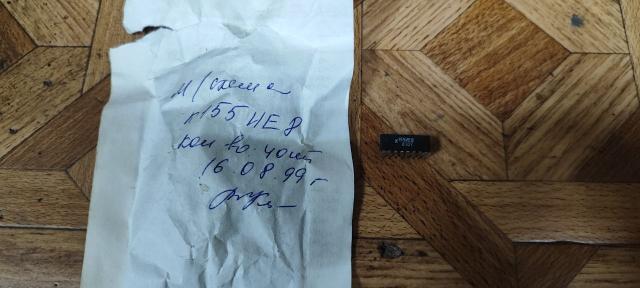 М/схема
К155ИЕ8
кол во. 40шт
16.08.99г